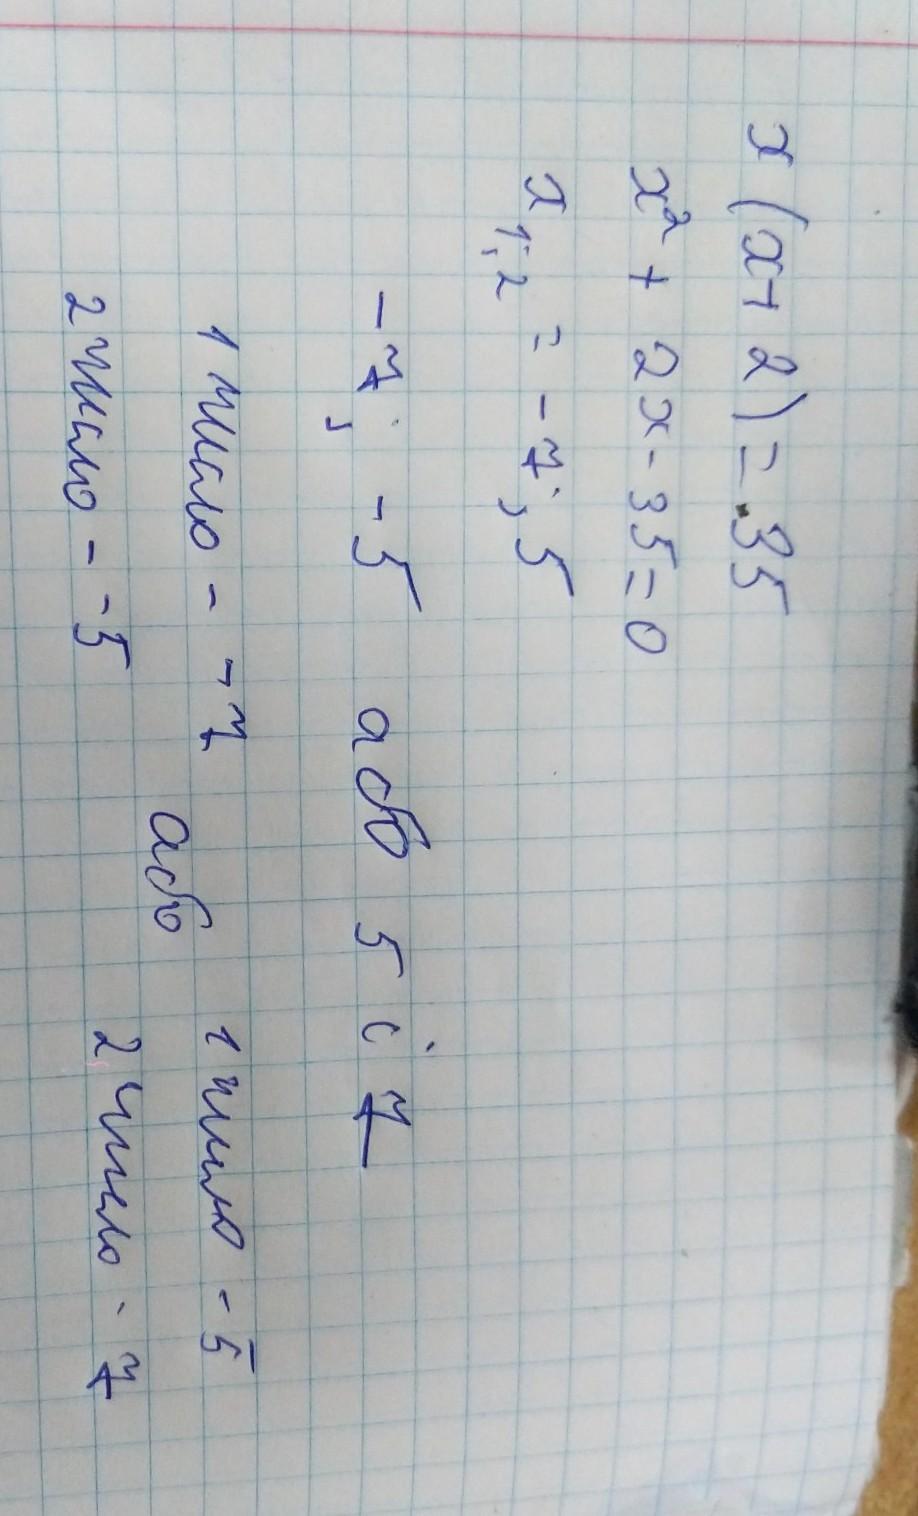 x(x+2)=35
x²+2x-35=0
x₁;₂ = -7; 5
-7; -5 або 5 і 7
1 число - -7 або 1 число - 5
2 число - -5 2 число - 7